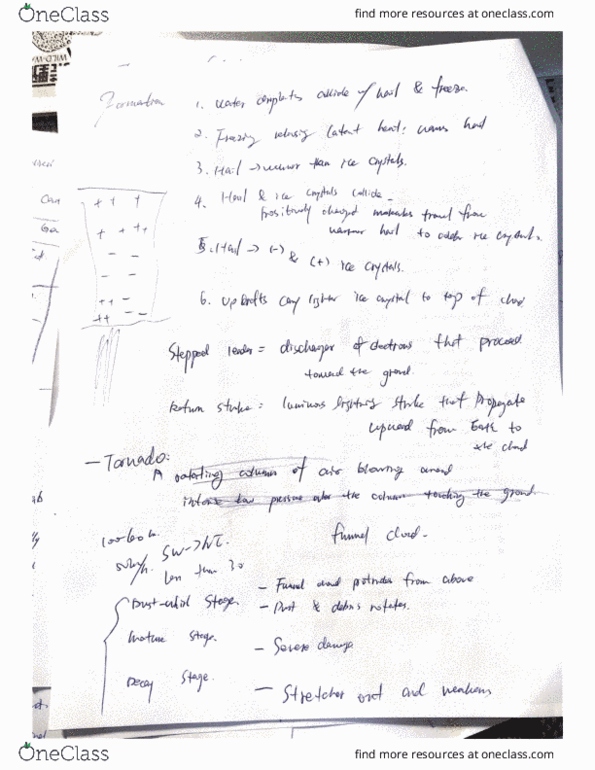 OneClass
find more resources at oneclass.com
Formation
1. Water collide w/ hail & freeze.
2. Freezing releasing latent heat: warms hail
3. Hail → warmer than ice crystals.
4. Hail & ice crystals collide -
Positively charged molecules travel from
warmer hail to colder ice crystals.
+ + +
+ + ++
- -
- -
++ -
++ - -
5. Hail → (-)
& (+) ice crystals.
6. Updrafts carry lighter ice crystal to top of cloud
Stepped leader = discharges of electrons that proceed
toward the ground.
Return stroke: luminous lightning stroke that propagate
upward from Earth to
the cloud
- Tornado:
A rotating column of air blowing around
intense low pressure the column touching the ground.
funnel cloud -
SW → NE.
less than 30
- Funnel cloud protrudes from above
Dust-whirl Stage. - Dust & debris rotates.
Mature Stage. - Severe damage
Decay Stage. - Stretches out and weakens
OneClass
find more resources at oneclass.com